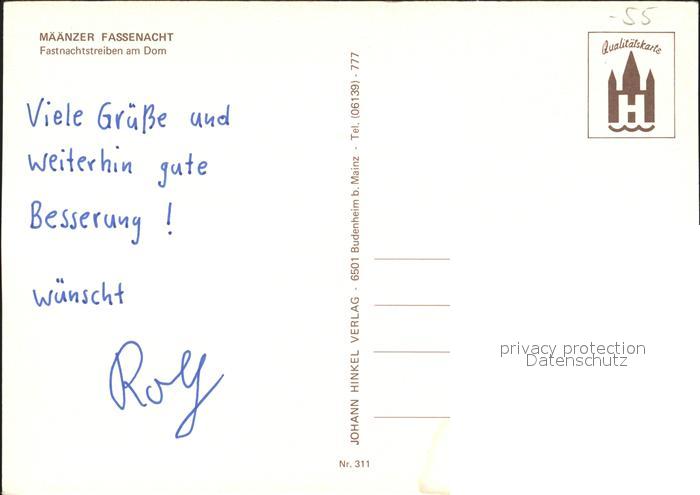 MÄÄNZER FASSENACHT
Fastnachtstreiben am Dom
-55
Qualitätskarte
H
Viele Grüße und
weiterhin gute
Besserung !
wünscht
Rolf
JOHANN HINKEL VERLAG - 6501 Budenheim b. Mainz - Tel. (06139) - 777
privacy protection
Datenschutz
Nr. 311